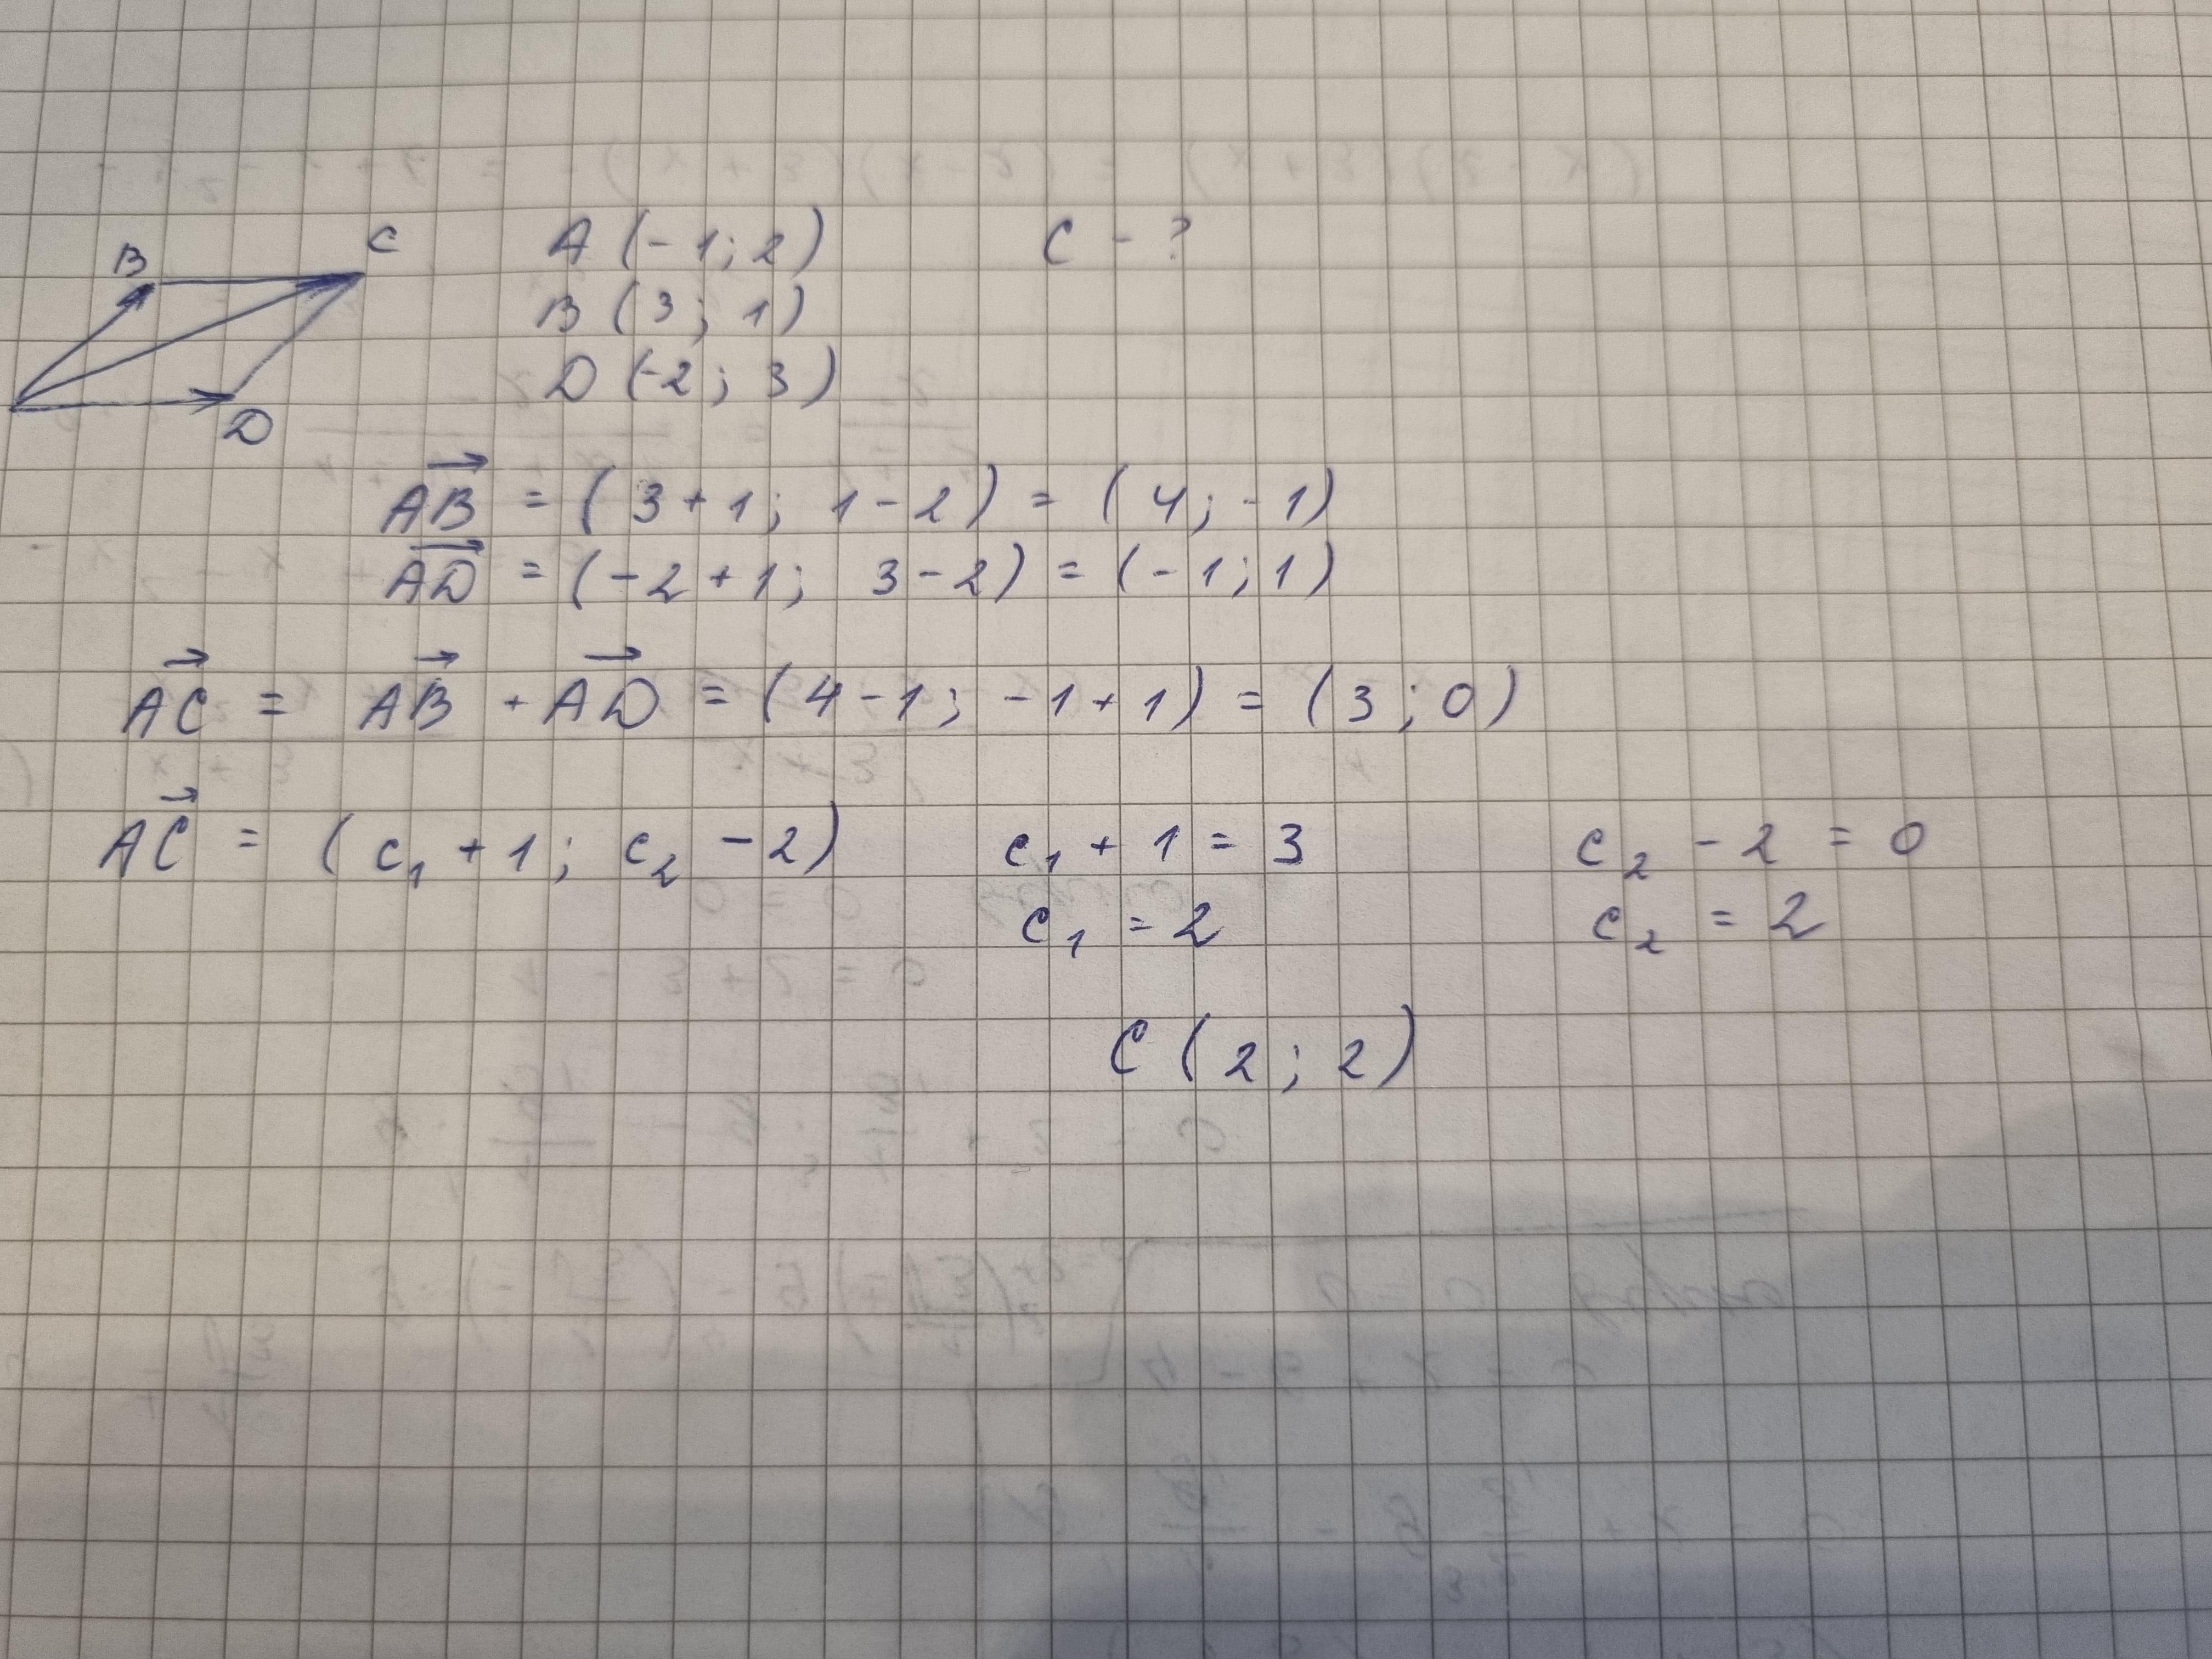 B C A (-1; 2) C - ?
B (3; 1)
D (-2; 3)
D
AB⃗ = (3 + 1; 1 - 2) = (4; -1)
AD⃗ = (-2 + 1; 3 - 2) = (-1; 1)
AC⃗ = AB⃗ + AD⃗ = (4 - 1; -1 + 1) = (3; 0)
AC⃗ = (c₁ + 1; c₂ - 2) c₁ + 1 = 3 c₂ - 2 = 0
c₁ = 2 c₂ = 2
C (2; 2)